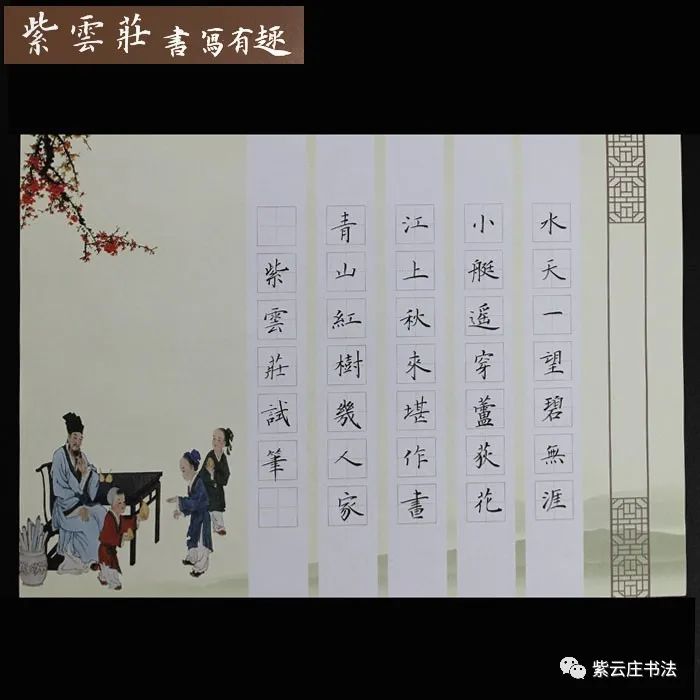 紫雲莊書寫有趣
水天一望碧無涯
小艇遥穿蘆荻花
江上秋來堪作畫
青山紅樹幾人家
紫雲莊試筆
紫云庄书法